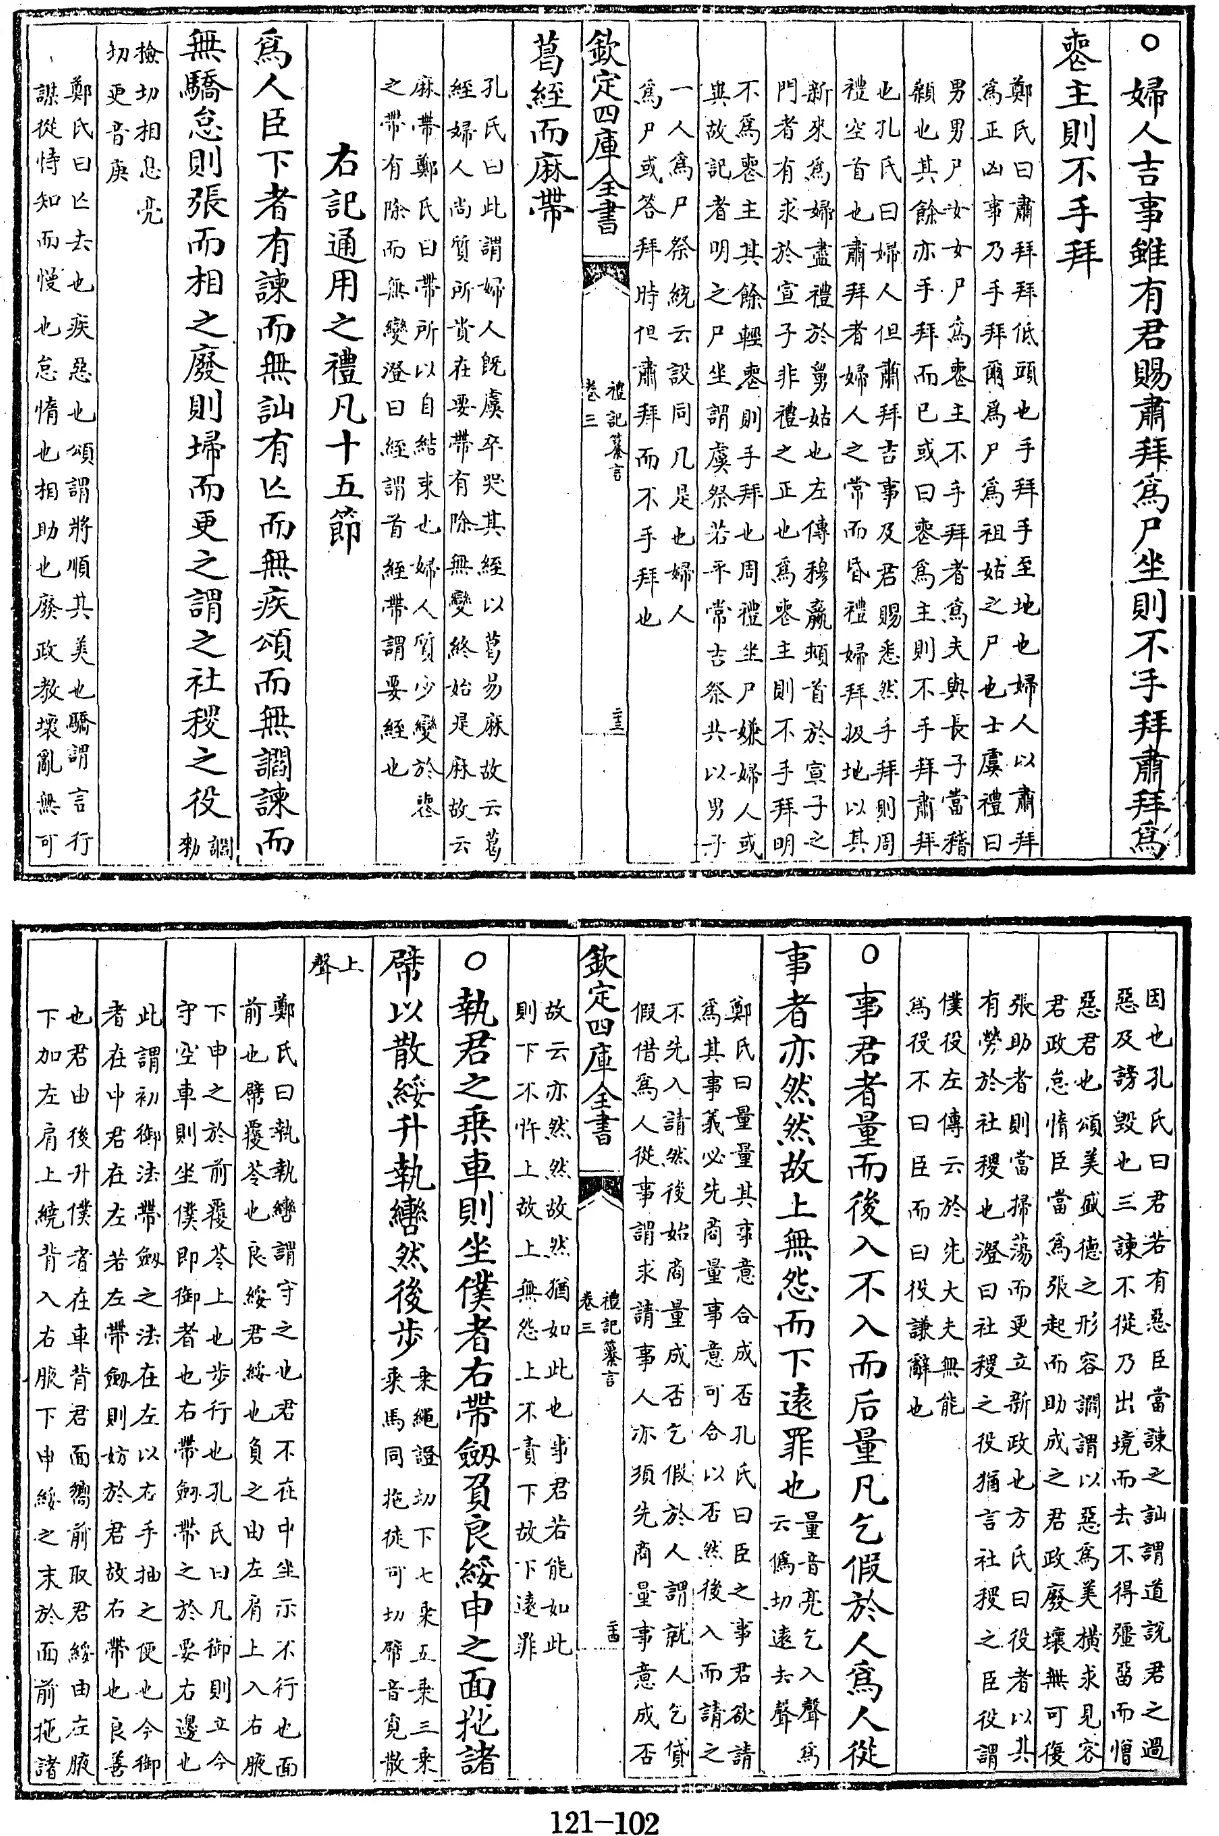 ○婦人吉事雖有君賜肅拜爲尸坐則不手拜肅拜爲
喪主則不手拜
鄭氏曰肅拜拜低頭也手拜手至地也婦人以肅拜
爲正凶事乃手拜爾爲尸爲祖姑之尸也士虞禮曰
男男尸女女尸爲喪主不手拜者爲夫與長子當稽
顙也其餘亦手拜而已或曰喪爲主則不手拜肅拜
也孔氏曰婦人但肅拜吉事及君賜悉然手拜則周
禮空首也肅拜者婦人之常而昏禮婦拜扱地以其
新來爲婦盡禮於舅姑也左傳穆嬴頓首於宣子之
門者有求於宣子非禮之正也爲喪主則不手拜明
不爲喪主其餘輕喪則手拜也周禮坐尸嫌婦人或
異故記者明之尸坐謂虞祭若平常吉祭共以男子
一人爲尸祭統云設同几是也婦人
爲尸或答拜時但肅拜而不手拜也
欽定四庫全書
禮記纂言
卷三
二十三
葛絰而麻帶
孔氏曰此謂婦人既虞卒哭其絰以葛易麻故云葛
絰婦人尚質所貴在要帶有除無變終始是麻故云
麻帶鄭氏曰帶所以自結束也婦人質少變於喪
之帶有除而無變澄曰絰謂首絰帶謂要絰也
右記通用之禮凡十五節
爲人臣下者有諫而無訕有亡而無疾頌而無讇諫而
無驕怠則張而相之廢則埽而更之謂之社稷之役讇
勑
撿切相息亮
切更音庚
鄭氏曰亡去也疾惡也頌謂將順其美也驕謂言行
謀從恃知而慢也怠惰也相助也廢政教壞亂無可
因也孔氏曰君若有惡臣當諫之訕謂道說君之過
惡及謗毀也三諫不從乃出境而去不得彊留而憎
惡君也頌美盛德之形容讇謂以惡爲美橫求見容
君政怠惰臣當爲張起而助成之君政廢壞無可復
張助者則當掃蕩而更立新政也方氏曰役者以其
有勞於社稷也澄曰社稷之役猶言社稷之臣役謂
僕役左傳云於先大夫無能
爲役不曰臣而曰役謙辭也
○事君者量而後入不入而后量凡乞假於人爲人從
事者亦然然故上無怨而下遠罪也量音亮乞入聲爲
云僞切遠去聲
鄭氏曰量量其事意合成否孔氏曰臣之事君欲請
爲其事義必先商量事意可合以否然後入而請之
不先入請然後始商量成否乞假於人謂就人乞貸
假借爲人從事謂求請事人亦須先商量事意成否
欽定四庫全書
禮記纂言
卷三
二十四
故云亦然然故然猶如此也事君若能如此
則下不忤上故上無怨上不責下故下遠罪
○執君之乗車則坐僕者右帶劒負良綏申之面扡諸
幦以散綏升執轡然後步乗繩證切下七乗五乗三乗
乗馬同扡徒可切幦音覓散
上
聲
鄭氏曰執執轡謂守之也君不在中坐示不行也面
前也幦覆苓也良綏君綏也負之由左肩上入右腋
下申之於前覆苓上也步行也孔氏曰凡御則立今
守空車則坐僕即御者也右帶劒帶之於要右邊也
此謂初御法帶劒之法在左以右手抽之便也今御
者在中君在左若左帶劒則妨於君故右帶也良善
也君由後升僕者在車背君面嚮前取君綏由左腋
下加左肩上繞背入右腋下申綏之末於面前扡諸
121-102